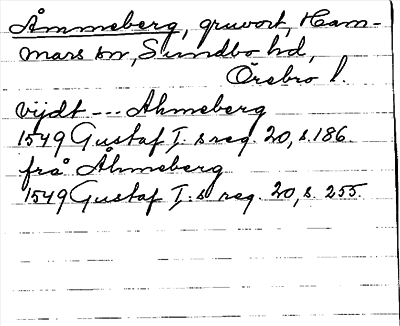 Åmmeberg, gruvort, Ham-
mars sn, Sundbo hd,
Örebro l.
vijdt --- Ahmeberg
1549 Gustaf I:s reg. 20, s. 186.
frå Åhmeberg
1549 Gustaf I:s reg. 20, s. 255.